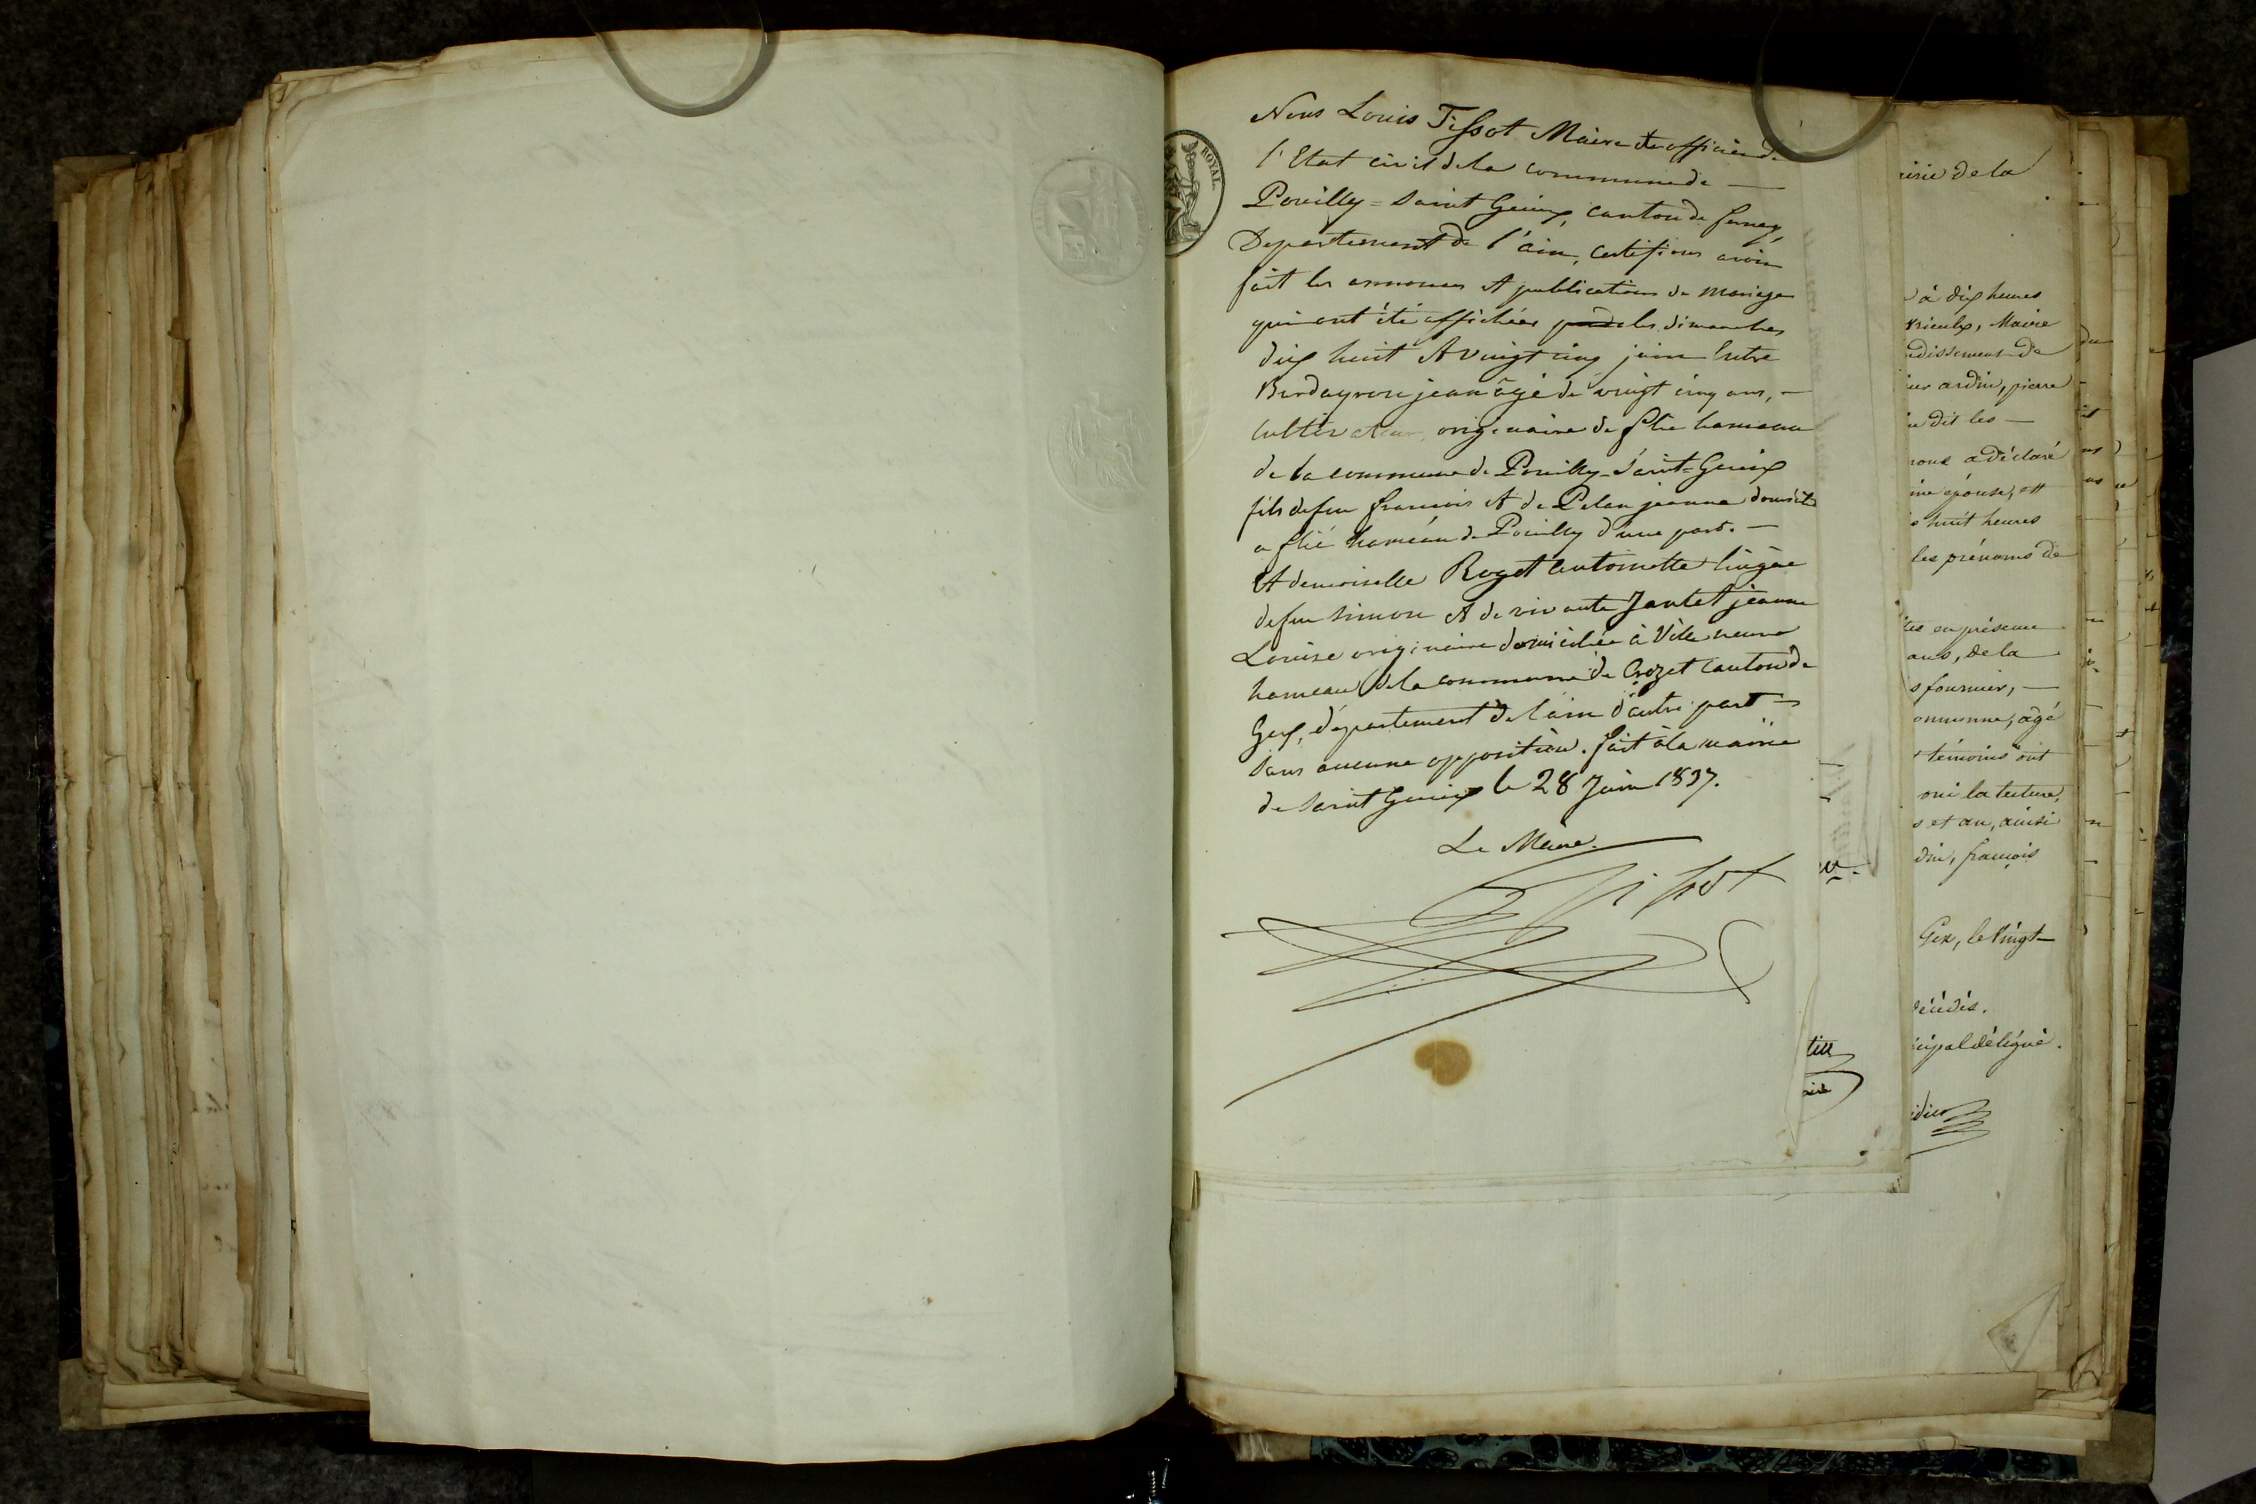 ROYAL.
Nous Louis Tissot Maire et officier de
l'Etat civil de la commune de —
Pouilly = Saint Genix, canton de ferney,
Departement de l'ain, certifions avoir
fait les annonces et publications de mariage
qui ont été affichées les dimanches
dix huit et vingt cinq juin Entre
jean âgé de vingt cinq ans, —
Cultivateur, originaire de flie hameau
de la commune de Pouilly-Saint-Genix
fils de feu francois et de Pelan jeanne domicilié
a flié hameau de Pouilly d'une part. —
Et demoiselle Roget antoinette lingère
de feu Simon et de vivante Jantet jeanne
Louise originaire domiciliée à Ville neuve
hameau de la commune de Crozet canton de
Gex, département de l'ain d'autre part —
Sans aucune opposition. fait à la mairie
de Saint Genix le 28 Juin 1837.
Le Maire.
Tissot
de la
à dix heures
Maire
de
ardin, pierre
dit les —
nous a déclaré
épouse, et
huit heures
les prénoms de
en présence
ans, de la
fournier, —
âgé
témoins ont
oui la lecture,
et an, ainsi
françois
Gex, le vingt-
décédés.
délégué.